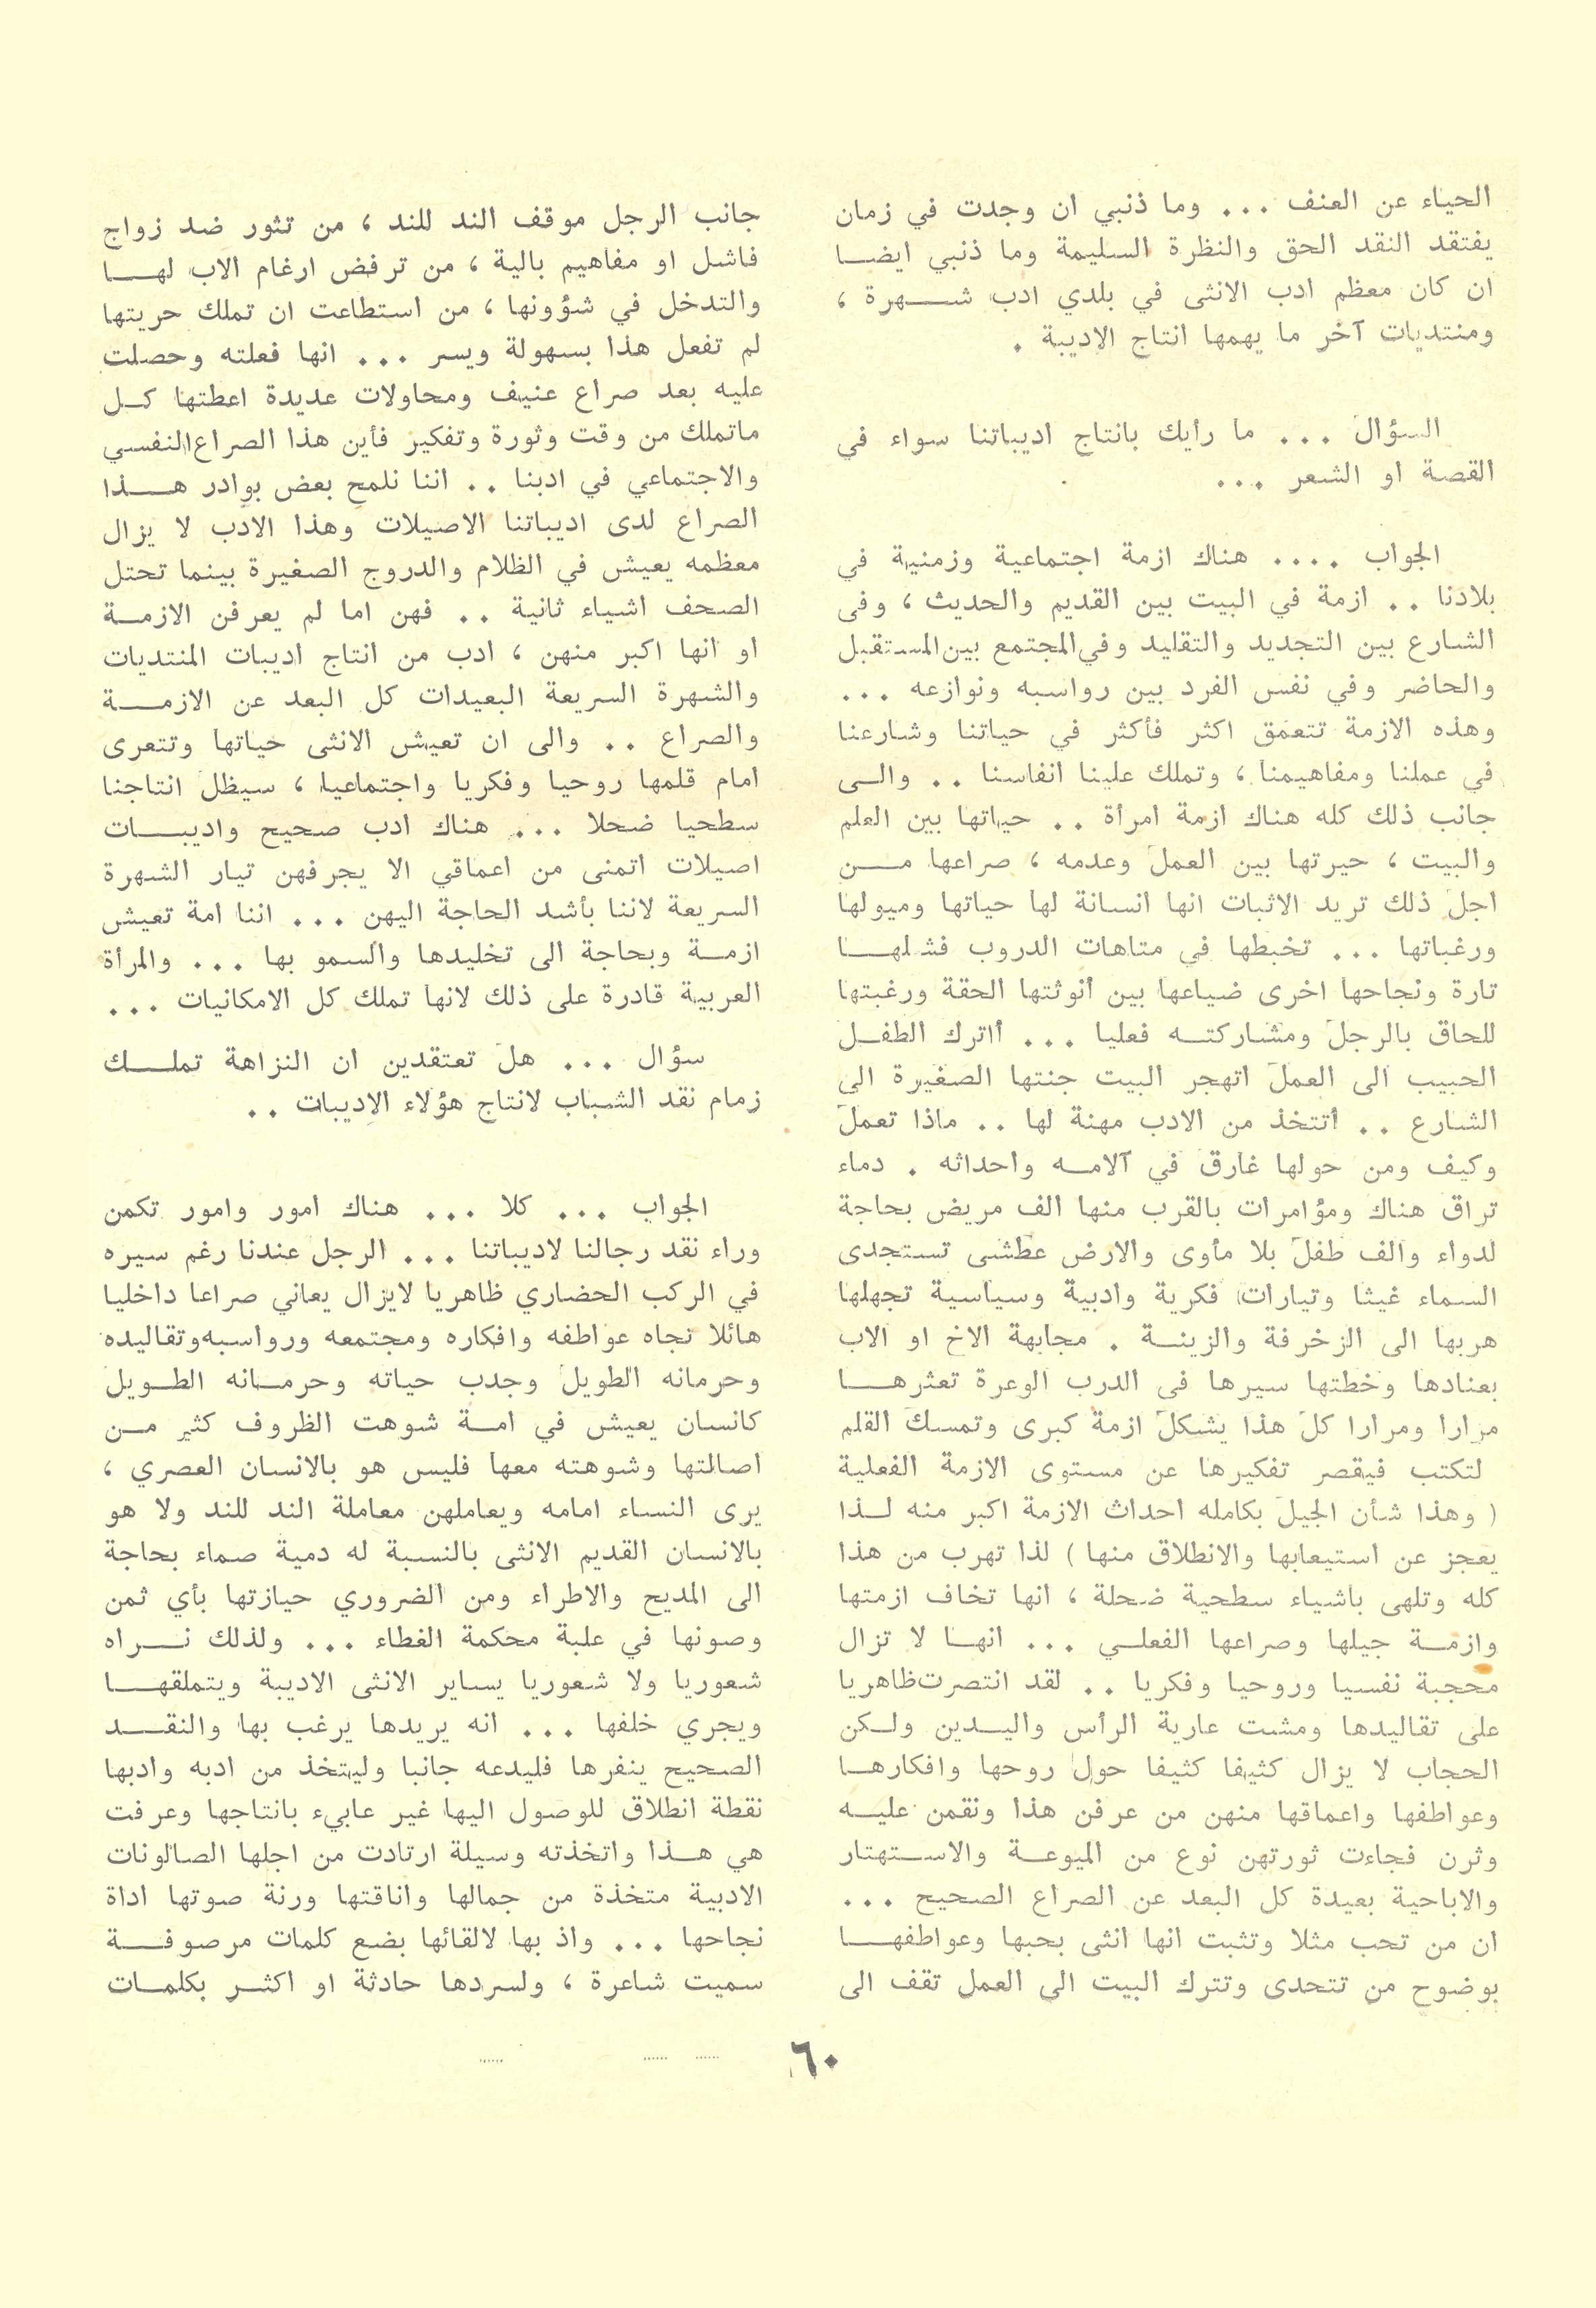 الحياء عن العنف ... وما ذنبي ان وجدت في زمان
يفتقد النقد الحق والنظرة السليمة وما ذنبي ايضا
ان كان معظم ادب الانثى في بلدي ادب شهرة ،
ومنتديات آخر ما يهمها انتاج الاديبة .
السؤال ... ما رأيك بانتاج اديباتنا سواء في
القصة او الشعر ...
الجواب .... هناك ازمة اجتماعية وزمنية في
بلادنا .. ازمة في البيت بين القديم والحديث ، وفى
الشارع بين التجديد والتقليد وفي المجتمع بين المستقبل
والحاضر وفي نفس الفرد بين رواسبه ونوازعه ...
وهذه الازمة تتعمق اكثر فأكثر في حياتنا وشارعنا
في عملنا ومفاهيمنا ، وتملك علينا انفاسنا .. والى
جانب ذلك كله هناك ازمة امرأة .. حياتها بين العلم
والبيت ، حيرتها بين العمل وعدمه ، صراعها من
اجل ذلك تريد الاثبات انها انسانة لها حياتها وميولها
ورغباتها ... تخبطها في متاهات الدروب فشلها
تارة ونجاحها اخرى ضياعها بين أنوثتها الحقة ورغبتها
للحاق بالرجل ومشاركته فعليا ... أاترك الطفل
الحبيب الى العمل اتهجر البيت جنتها الصغيرة الى
الشارع .. أتتخذ من الادب مهنة لها .. ماذا تعمل
وكيف ومن حولها غارق في آلامه واحداثه . دماء
تراق هناك ومؤامرات بالقرب منها الف مريض بحاجة
لدواء والف طفل بلا مأوى والارض عطشى تستجدى
السماء غيثا وتيارات فكرية وادبية وسياسية تجهلها
هربها الى الزخرفة والزينة . مجابهة الاخ او الاب
بعنادها وخطتها سيرها في الدرب الوعرة تعثرها
مرارا ومرارا كل هذا يشكل ازمة كبرى وتمسك القلم
لتكتب فيقصر تفكيرها عن مستوى الازمة الفعلية
( وهذا شأن الجيل بكامله احداث الازمة اكبر منه لذا
يعجز عن استيعابها والانطلاق منها ) لذا تهرب من هذا
كله وتلهى باشياء سطحية ضحلة ، انها تخاف ازمتها
وازمة جيلها وصراعها الفعلي ... انها لا تزال
محجبة نفسيا وروحيا وفكريا .. لقد انتصرت ظاهريا
على تقاليدها ومشت عارية الرأس واليدين ولكن
الحجاب لا يزال كثيفا كثيفا حول روحها وافكارها
وعواطفها واعماقها منهن من عرفن هذا ونقمن عليه
وثرن فجاءت ثورتهن نوع من الميوعة والاستهتار
والاباحية بعيدة كل البعد عن الصراع الصحيح ...
ان من تحب مثلا وتثبت انها انثى بحبها وعواطفها
بوضوح من تتحدى وتترك البيت الى العمل تقف الى
جانب الرجل موقف الند للند ، من تثور ضد زواج
فاشل او مفاهيم بالية ، من ترفض ارغام الاب لها
والتدخل في شؤونها ، من استطاعت ان تملك حريتها
لم تفعل هذا بسهولة ويسر ... انها فعلته وحصلت
عليه بعد صراع عنيف ومحاولات عديدة اعطتها كل
ماتملك من وقت وثورة وتفكير فأين هذا الصراع النفسي
والاجتماعي في ادبنا .. اننا نلمح بعض بوادر هذا
الصراع لدى اديباتنا الاصيلات وهذا الادب لا يزال
معظمه يعيش في الظلام والدروج الصغيرة بينما تحتل
الصحف اشياء ثانية .. فهن اما لم يعرفن الازمة
او انها اكبر منهن ، ادب من انتاج اديبات المنتديات
والشهرة السريعة البعيدات كل البعد عن الازمة
والصراع .. والى ان تعيش الانثى حياتها وتتعرى
امام قلمها روحيا وفكريا واجتماعيا ، سيظل انتاجنا
سطحيا ضحلا ... هناك ادب صحيح واديبات
اصيلات اتمنى من اعماقي الا يجرفهن تيار الشهرة
السريعة لاننا بأشد الحاجة اليهن ... اننا امة تعيش
ازمة وبحاجة الى تخليدها والسمو بها ... والمرأة
العربية قادرة على ذلك لانها تملك كل الامكانيات ...
سؤال ... هل تعتقدين ان النزاهة تملك
زمام نقد الشباب لانتاج هؤلاء الاديبات ..
الجواب ... كلا ... هناك امور وامور تكمن
وراء نقد رجالنا لاديباتنا ... الرجل عندنا رغم سيره
في الركب الحضاري ظاهريا لايزال يعاني صراعا داخليا
هائلا تجاه عواطفه وافكاره ومجتمعه ورواسبه وتقاليده
وحرمانه الطويل وجدب حياته وحرمانه الطويل
كانسان يعيش في امة شوهت الظروف كثير من
اصالتها وشوهته معها فليس هو بالانسان العصري ،
يرى النساء امامه ويعاملهن معاملة الند للند ولا هو
بالانسان القديم الانثى بالنسبة له دمية صماء بحاجة
الى المديح والاطراء ومن الضروري حيازتها بأي ثمن
وصونها في علبة محكمة الغطاء ... ولذلك نراه
شعوريا ولا شعوريا يساير الانثى الاديبة ويتملقها
ويجري خلفها ... انه يريدها يرغب بها والنقد
الصحيح ينفرها فليدعه جانبا وليتخذ من ادبه وادبها
نقطة انطلاق للوصول اليها غير عابيء بانتاجها وعرفت
هي هذا واتخذته وسيلة ارتادت من اجلها الصالونات
الادبية متخذة من جمالها واناقتها ورنة صوتها اداة
نجاحها ... واذ بها لالقائها بضع كلمات مرصوفة
سميت شاعرة ، ولسردها حادثة او اكثر بكلمات
٦٠